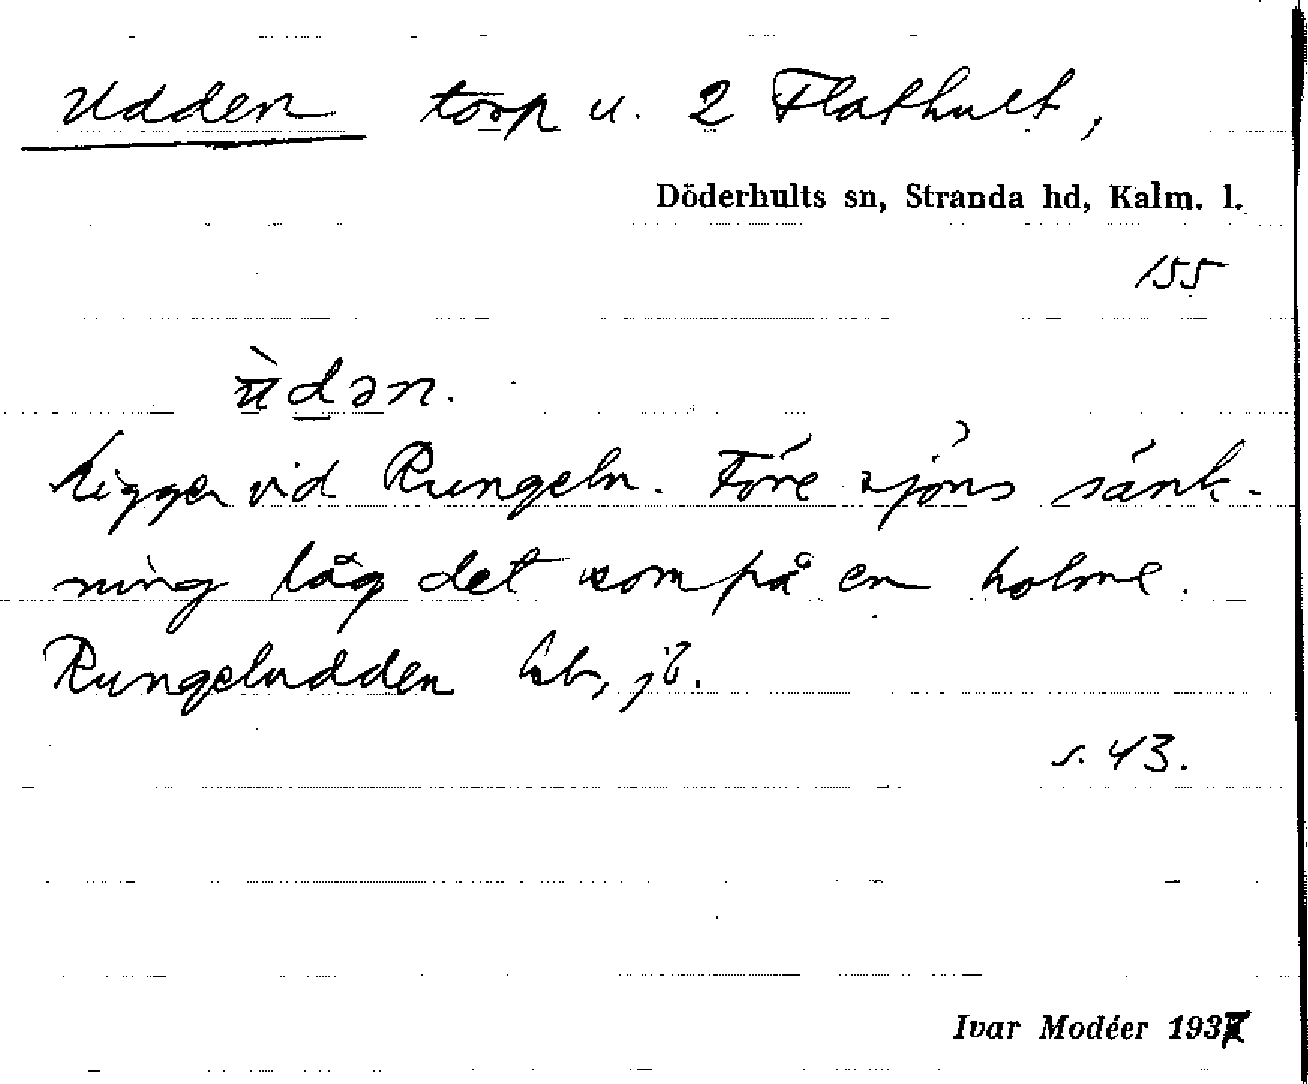 Udden torp u. 2 Flathult,
Döderhults sn, Stranda hd, Kalm. l.
155
ùdən.
Ligger vid Rungeln. Före sjöns sänk-
ning låg det som på en holme.
Rungeludden
s. 43.
Ivar Modéer 1937